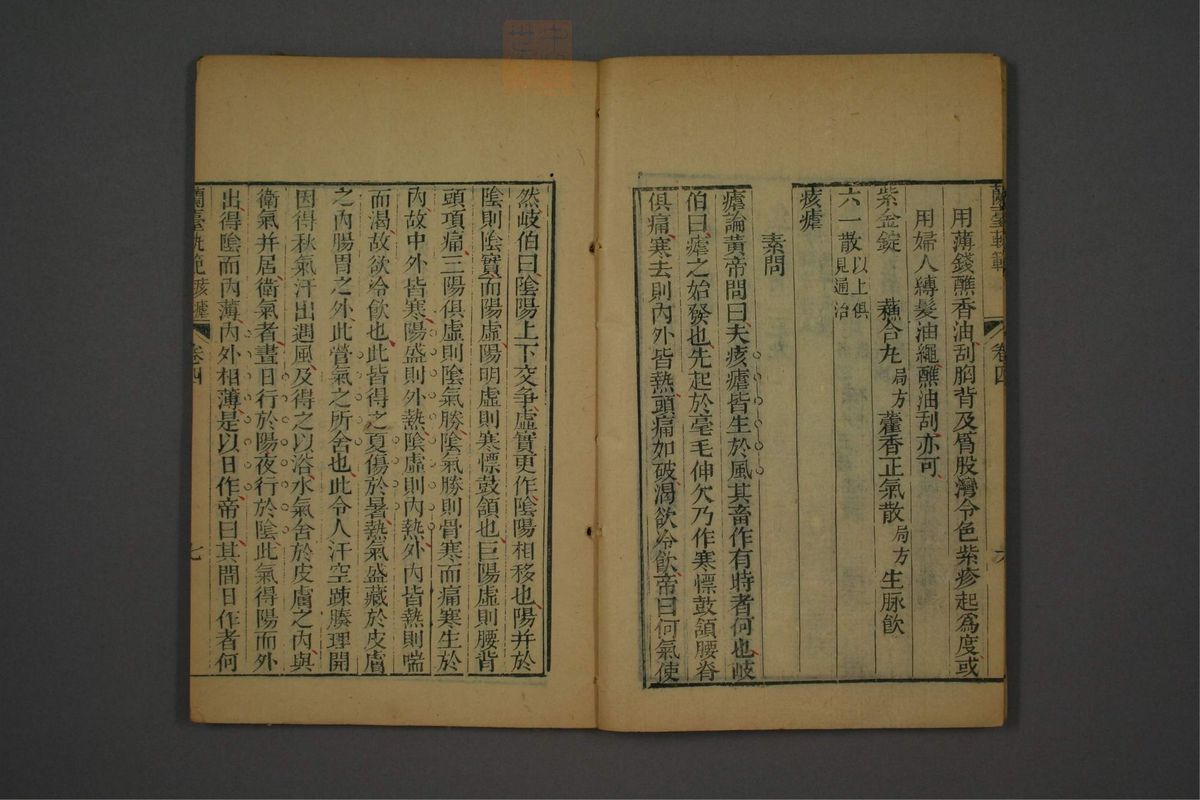 蘭臺軌範
卷四
六
用薄錢蘸香油刮胸背及臂股灣令色紫疹起爲度或
用婦人縳髮油繩蘸油刮亦可
紫金錠 蘇合丸局方 藿香正氣散局方 生脉飲
六一散以上俱見通治
痎瘧
素問
瘧論黃帝問曰夫痎瘧皆生於風其畜作有時者何也岐
伯曰瘧之始發也先起於毫毛伸欠乃作寒慄鼓頷腰脊
俱痛寒去則內外皆熱頭痛如破渴欲冷飲帝曰何氣使
然岐伯曰陰陽上下交爭虛實更作陰陽相移也陽并於
陰則陰實而陽虛陽明虛則寒慄鼓頷也巨陽虛則腰背
頭項痛三陽俱虛則陰氣勝陰氣勝則骨寒而痛寒生於
內故中外皆寒陽盛則外熱陰虛則內熱外內皆熱則喘
而渴故欲冷飲也此皆得之夏傷於暑熱氣盛藏於皮膚
之內腸胃之外此營氣之所舍也此令人汗空疎腠理開
因得秋氣汗出遇風及得之以浴水氣舍於皮膚之內與
衛氣并居衛氣者晝日行於陽夜行於陰此氣得陽而外
出得陰而內薄內外相薄是以日作帝曰其間日作者何
蘭臺軌範 痎瘧
卷四
七